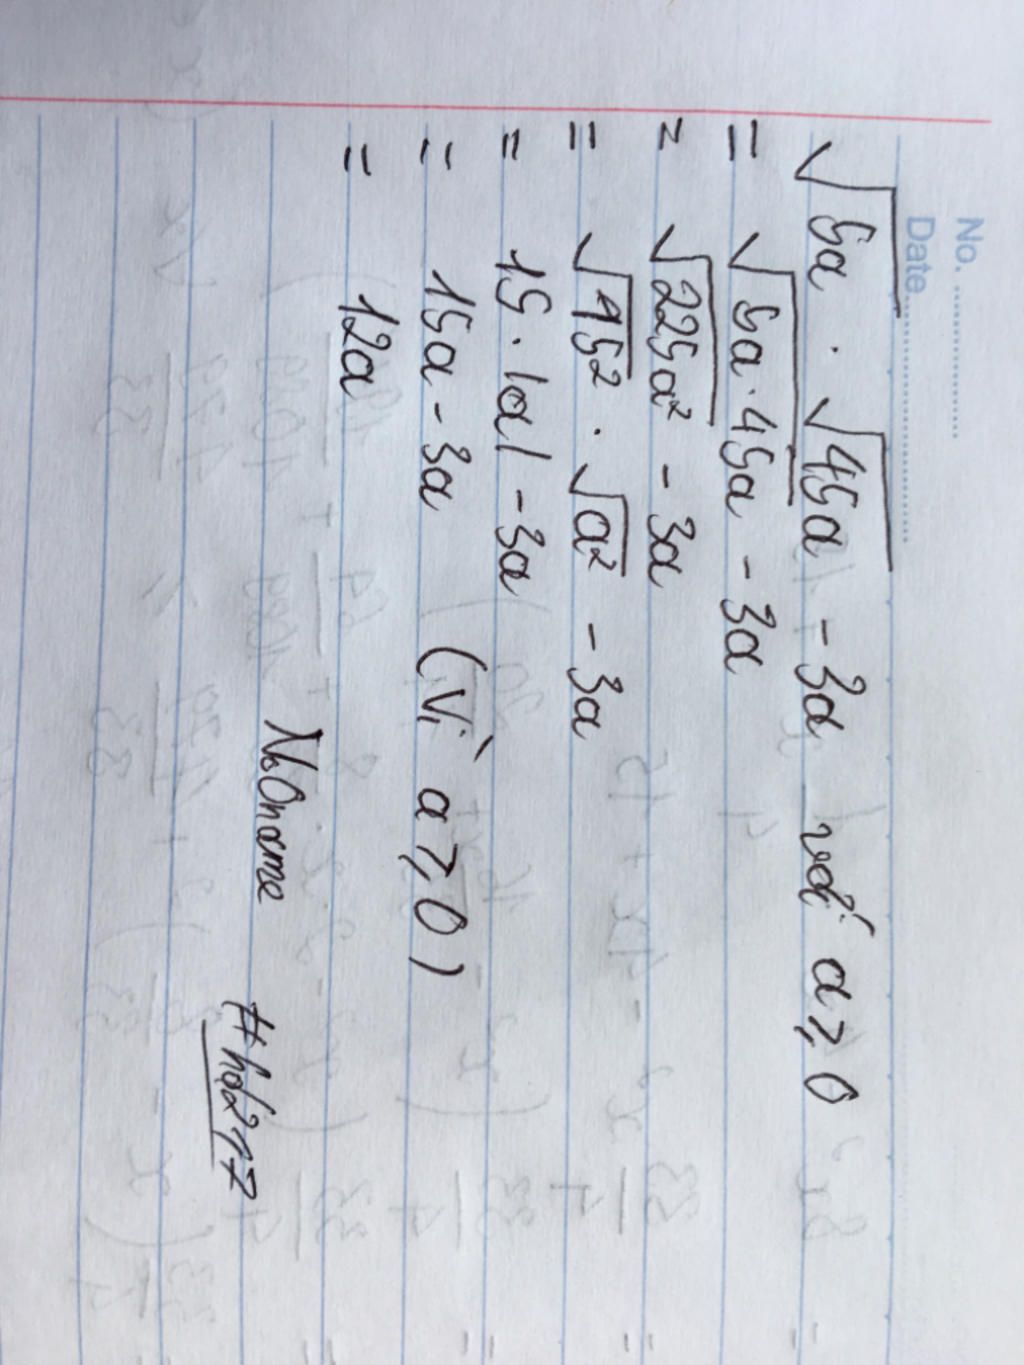 No. ...............
Date ...............................
√5a . √45a - 3a với a ≥ 0
= √5a . 45a - 3a
= √225a² - 3a
= √15² . √a² - 3a
= 15 . |a| - 3a
= 15a - 3a (Vì a ≥ 0)
= 12a
NoOname
#hd217